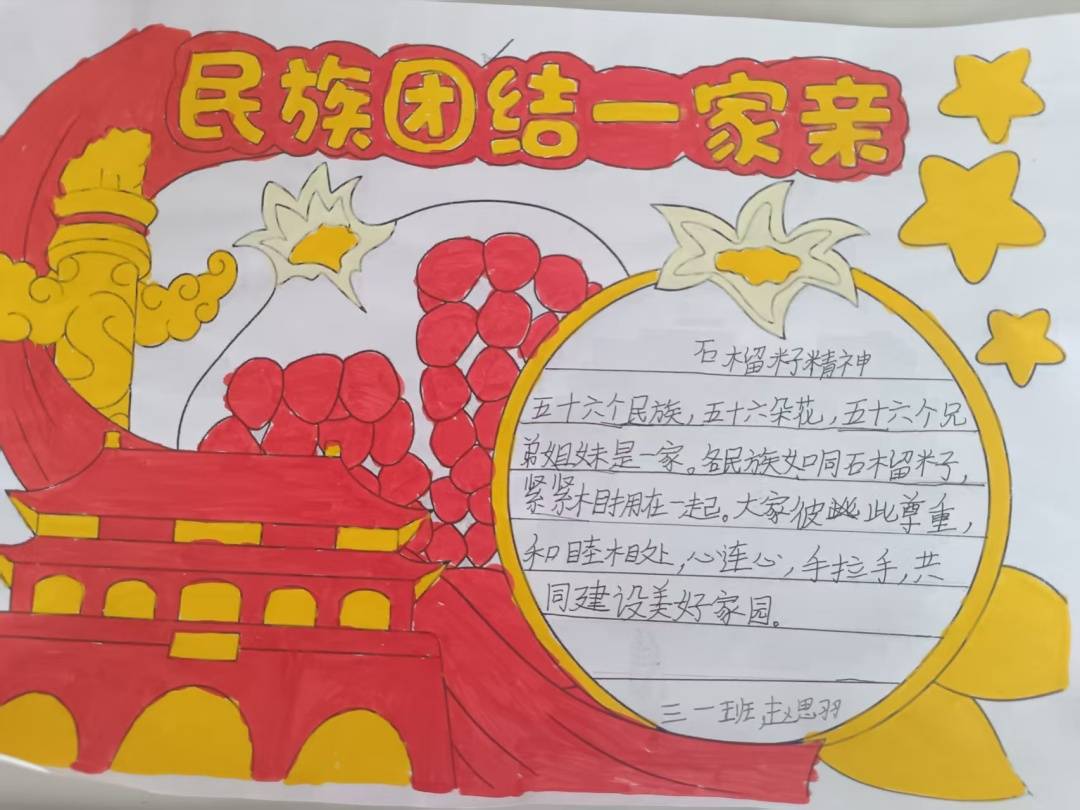 民族团结一家亲
石榴籽精神
五十六个民族，五十六朵花，五十六个兄
弟姐妹是一家。各民族如同石榴籽，
紧紧相拥在一起。大家彼此尊重，
和睦相处，心连心，手拉手，共
同建设美好家园。
三一班，赵思羽